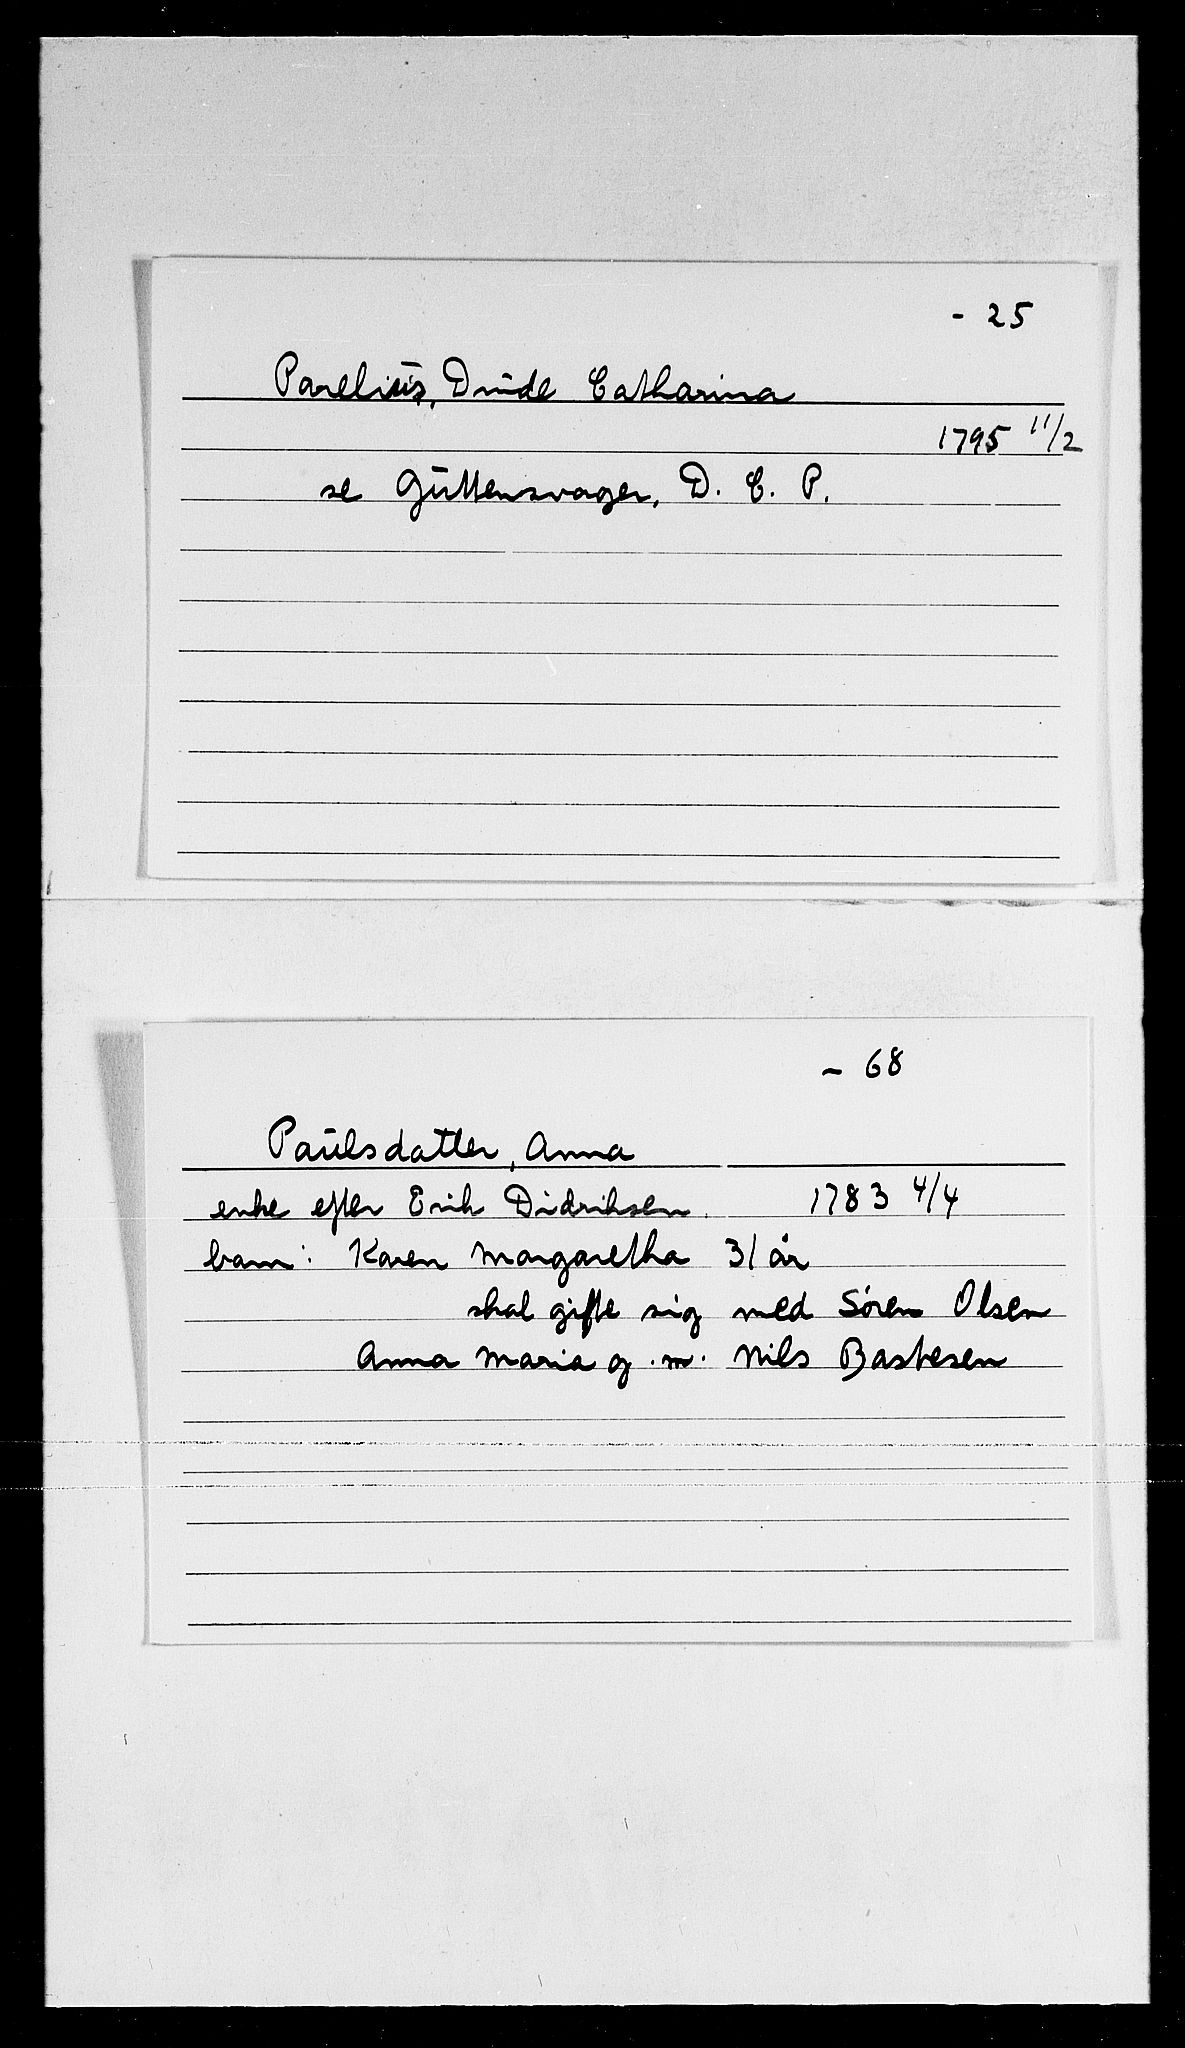 - 25
Parelius, Drude Catharina
1795 11/2
se Güttensvager, D. C. P.
- 68
Paulsdatter, Anna
enke efter Erik Didriksen. 1783 4/4
barn: Karen Margaretha 31 år
skal gifte sig med Sören Olsen
Anna Maria g. m. Nils Bastesen